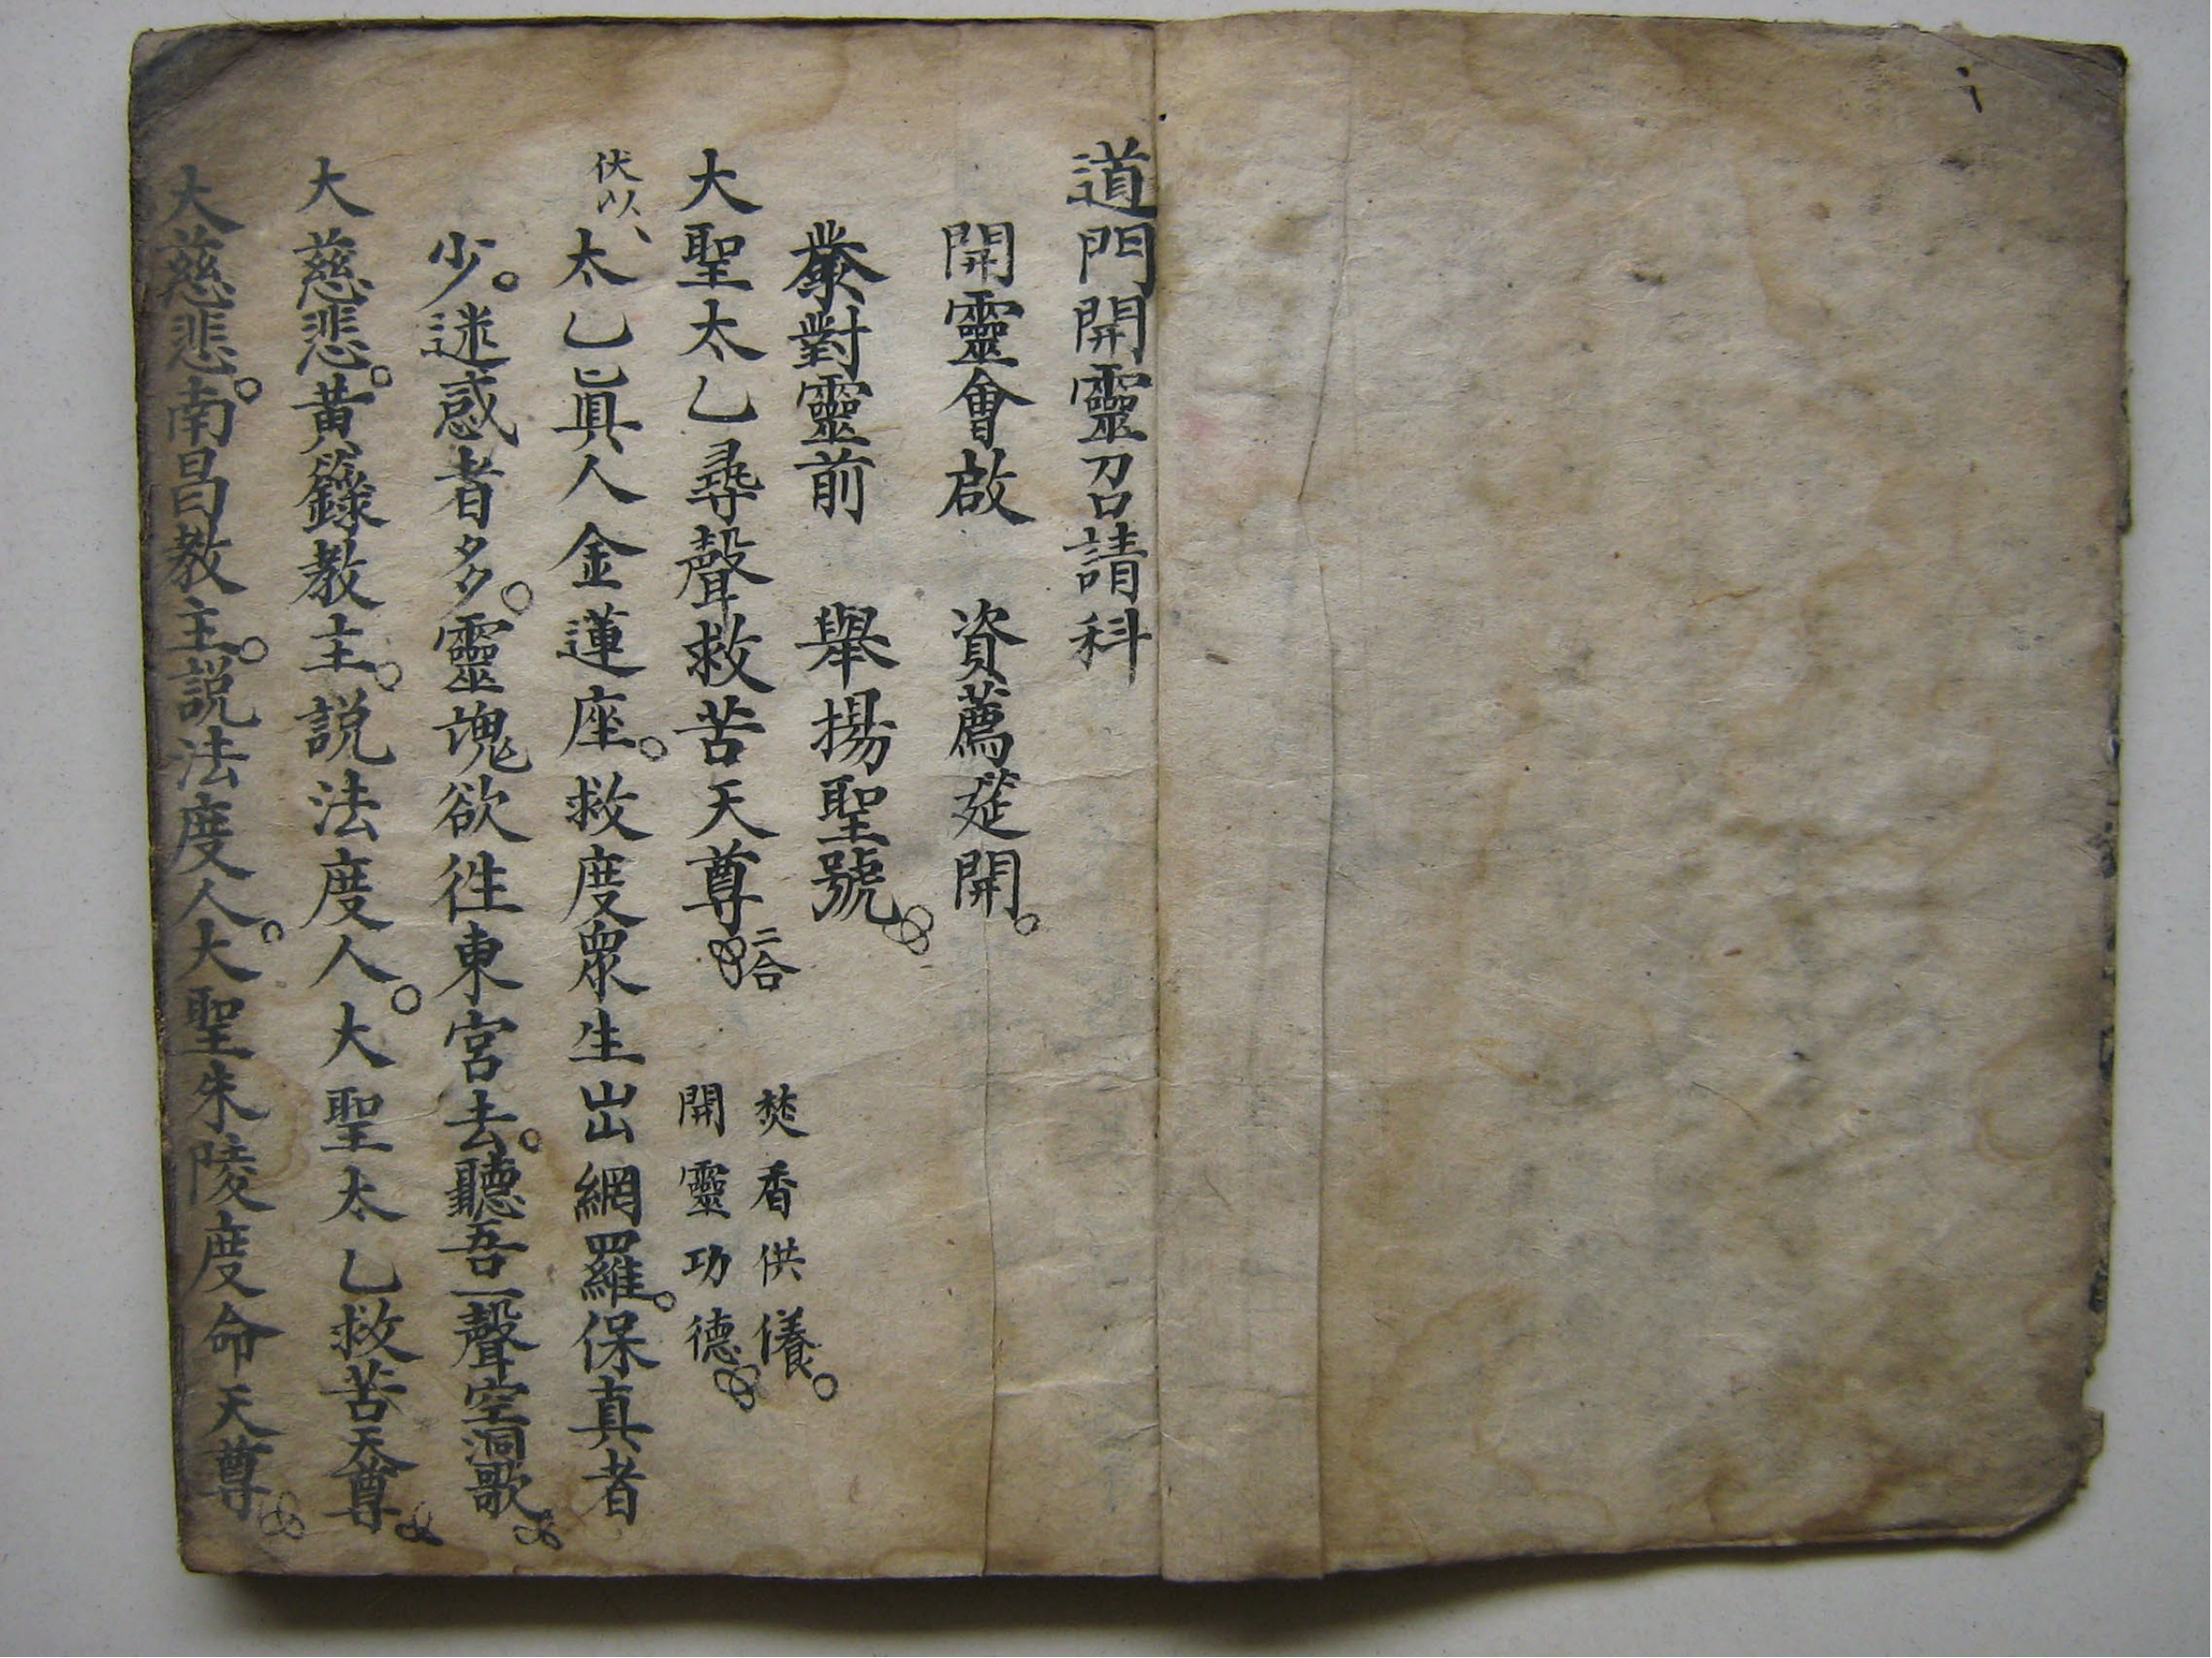 道門開靈召請科
開靈會啟　資薦筵開。
眾對靈前　舉揚聖號。
大聖太乙尋聲救苦天尊 二合
焚香供養。
開靈功德
伏以、太乙眞人金蓮座。救度眾生出網羅。保真者
少。迷惑者多。靈魂欲徃東宮去。聽吾一聲空洞歌
大慈悲。黃籙教主。説法度人。大聖太乙救苦天尊
大慈悲。南昌教主。説法度人。大聖朱陵度命天尊